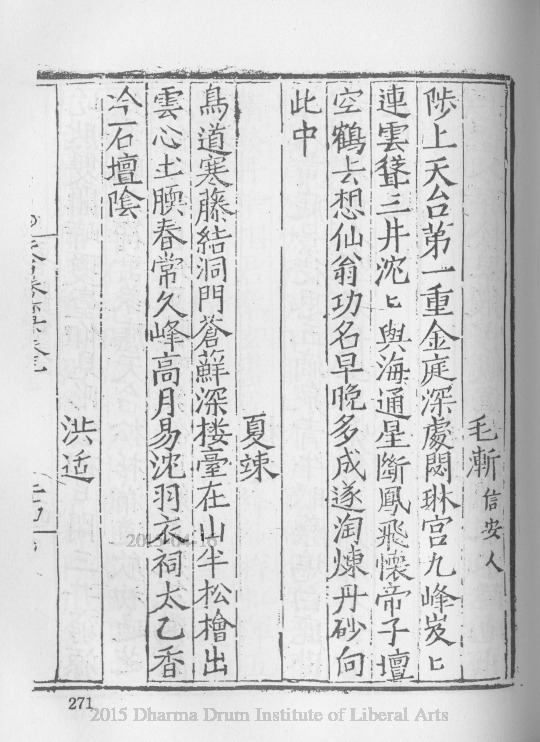 毛漸信安人
陟上天台第一重金庭深處悶琳宮九峰岌匕
連雲聳三井沈匕與海通星斷鳳飛懷帝子壇
空鶴去想仙翁功名早晚多成遂淘煉丹砂向
此中
夏竦
鳥道寒藤結洞門蒼蘚深楼臺在山半松檜出
雲心土腴春常久峰高月易沈羽衣祠太乙香
冷石壇陰
洪适
271
2015 Dharma Drum Institute of Liberal Arts